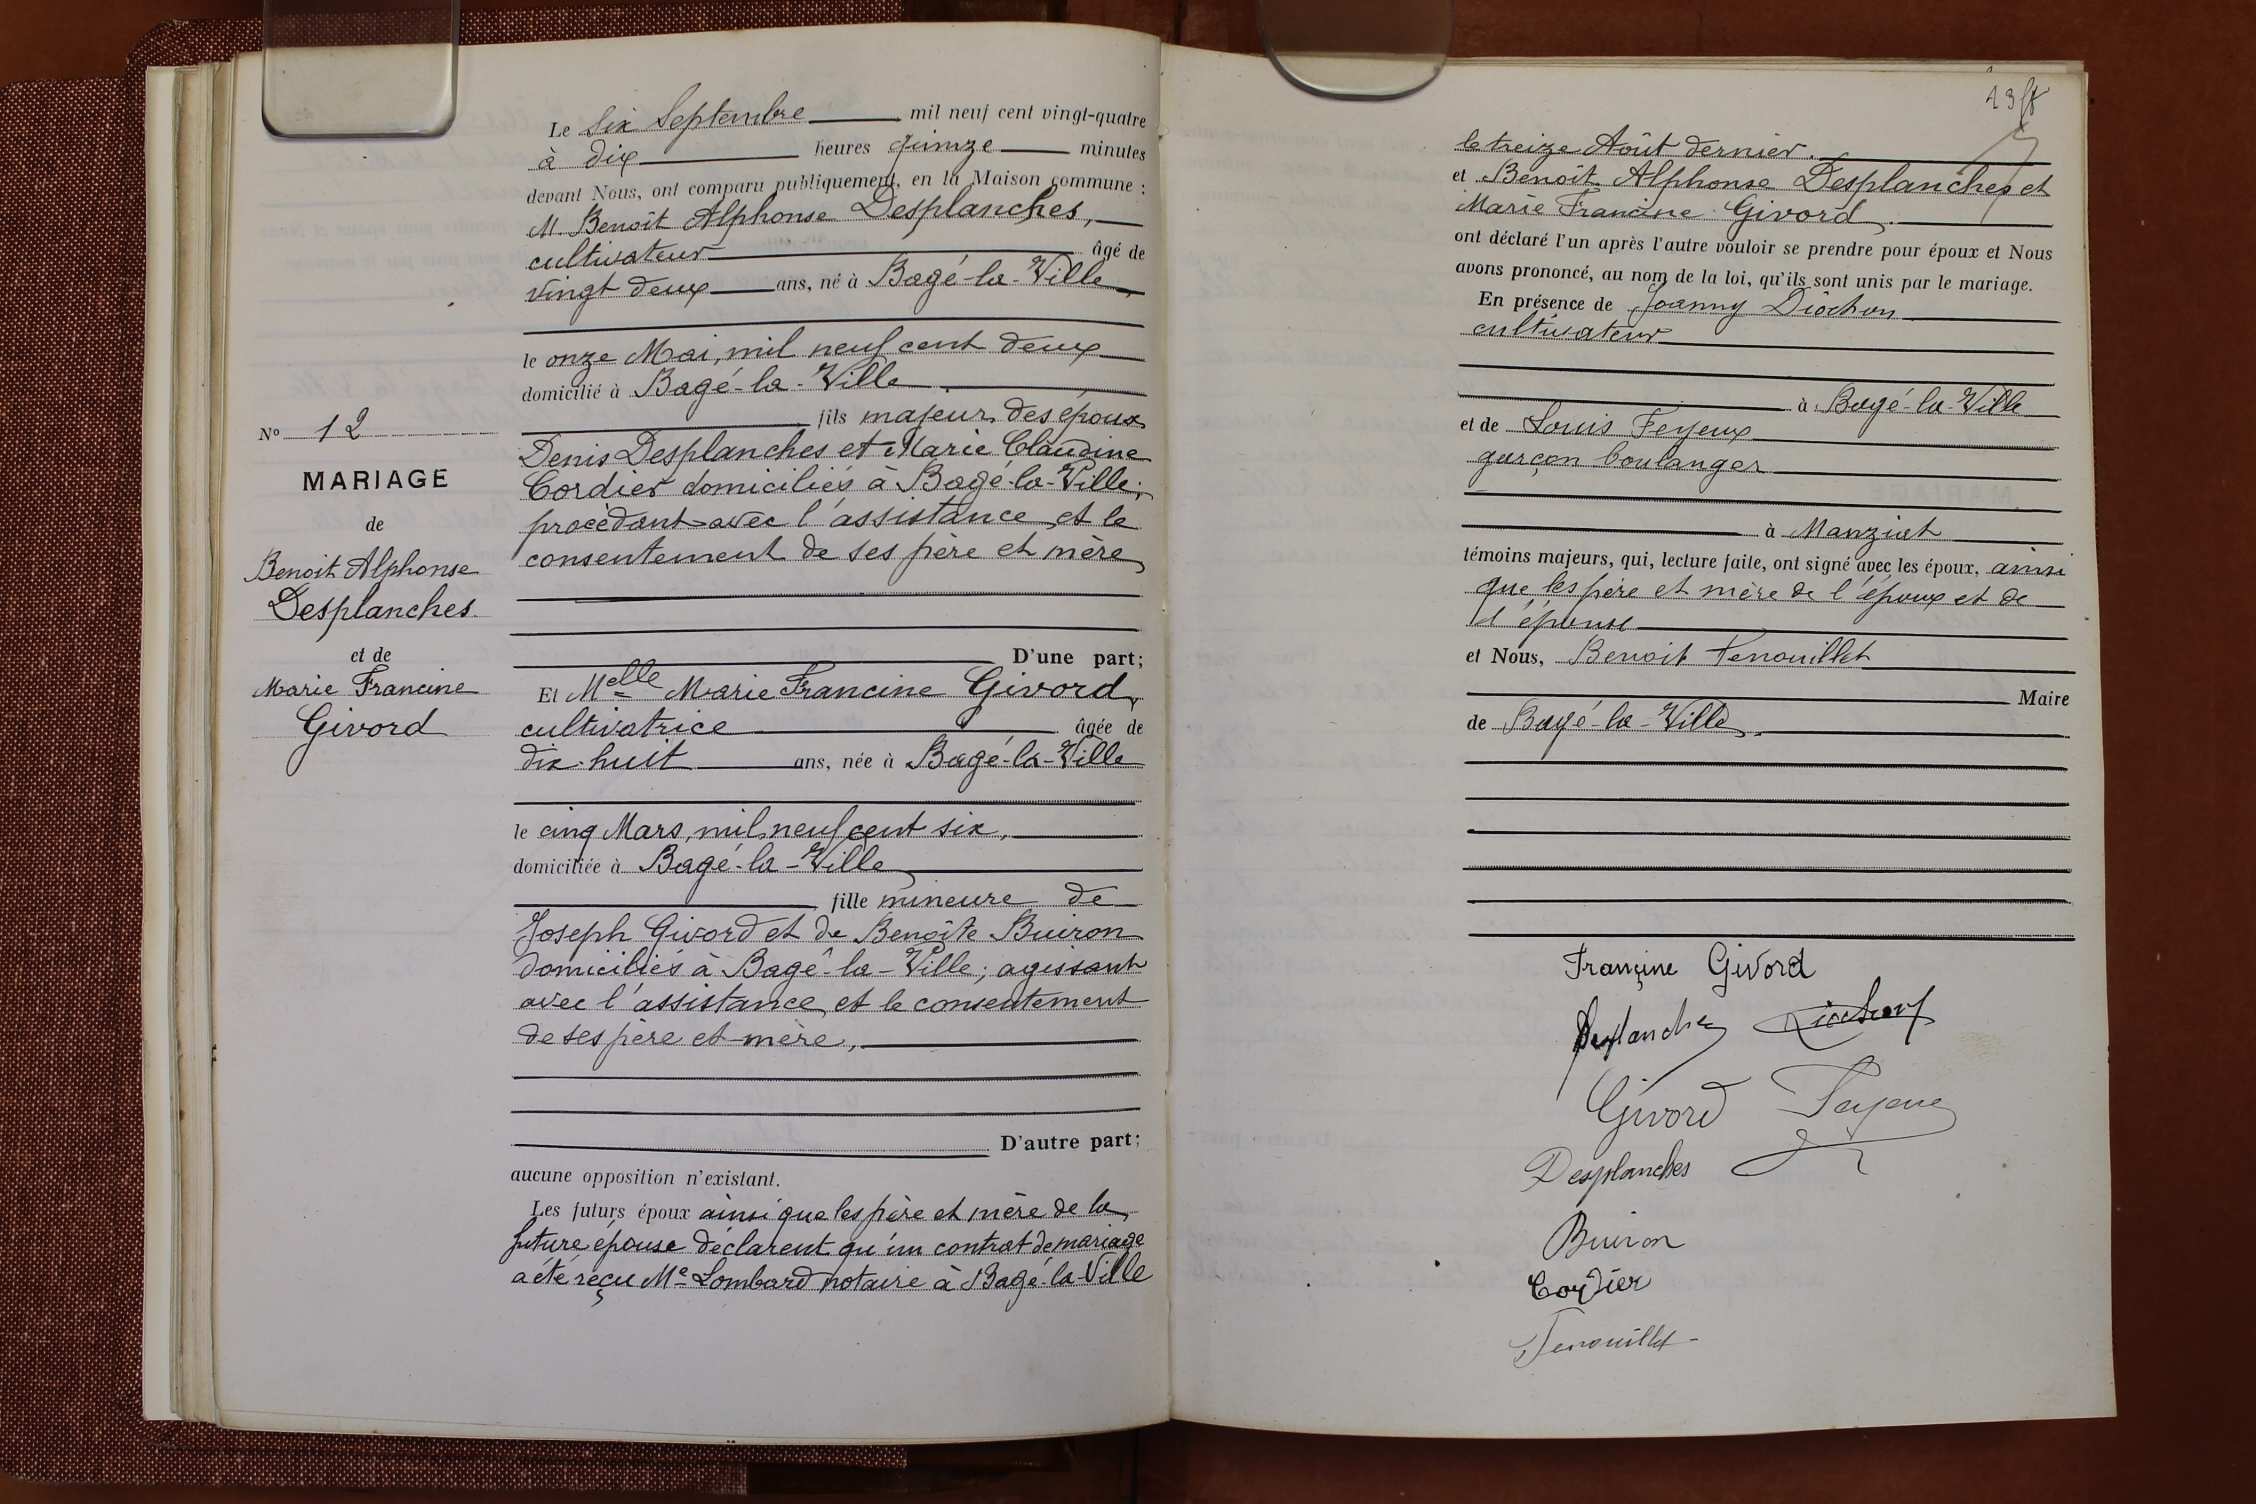 Le Six Septembre mil neuf cent vingt-quatre
à dix heures quinze minutes
devant Nous, ont comparu publiquement, en la Maison commune :
M. Benoît Alphonse Desplanches,
cultivateur âgé de
vingt deux ans, né à Bagé-la-Ville,
le onze Mai, mil neuf cent deux
domicilié à Bagé-la-Ville
fils majeur des époux
Denis Desplanches et Marie Claudine
Cordier domiciliés à Bagé-la-Ville;
procédant avec l'assistance et le
consentement de ses père et mère
D'une part;
Et Melle Marie Francine Givord,
cultivatrice âgée de
dix-huit ans, née à Bagé-la-Ville
le cinq Mars, mil neuf cent six,
domiciliée à Bagé-la-Ville
fille mineure de
Joseph Givord et de Benoîte Buiron
domiciliés à Bagé-la-Ville; agissant
avec l'assistance et le consentement
de ses père et mère,
D'autre part;
aucune opposition n'existant.
Les futurs époux ainsi que les père et mère de la
future épouse déclarent qu'un contrat de mariage
a été reçu Me Lombard notaire à Bagé-la-Ville
No 12
MARIAGE
de
Benoit Alphonse
Desplanches.
et de
Marie Francine
Givord
le treize Août dernier.
et Benoît Alphonse Desplanches et
Marie Francine Givord.
ont déclaré l'un après l'autre vouloir se prendre pour époux et Nous
avons prononcé, au nom de la loi, qu'ils sont unis par le mariage.
En présence de Joanny Diochon
cultivateur
à Bagé-la-Ville
et de Louis Feyeux
garçon boulanger
à Manziat
témoins majeurs, qui, lecture faite, ont signé avec les époux, ainsi
que les père et mère de l'époux et de
l'épouse
et Nous, Benoit Fenouillet
Maire
de Bagé-la-Ville.
Françine Givord
Desplanches Diochon
Givord Feyeux
Desplanches
Buiron
Cordier
Fenouillet